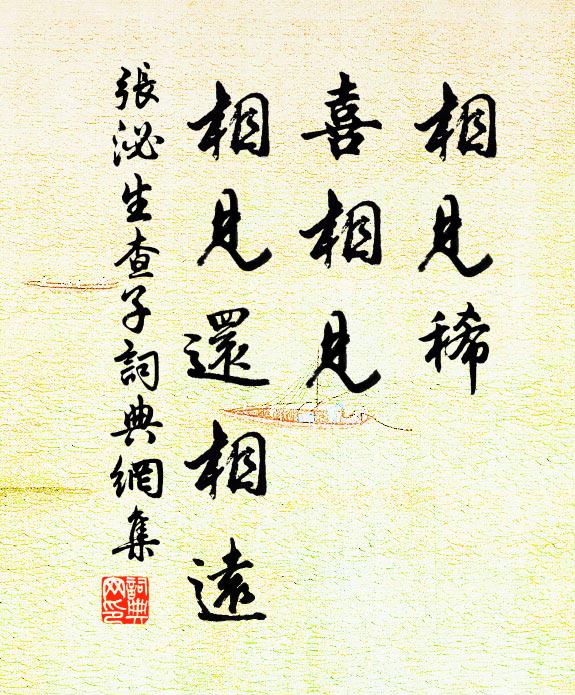 相見稀
喜相見
相見還相遠
張泌生查子詞典網集
詞典网印